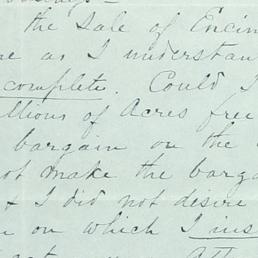 the Sale of Encin
as I understan
complete. Could I
llions of Acres free
bargain on the
ot make the barga
& I did not desire
on on which I ins